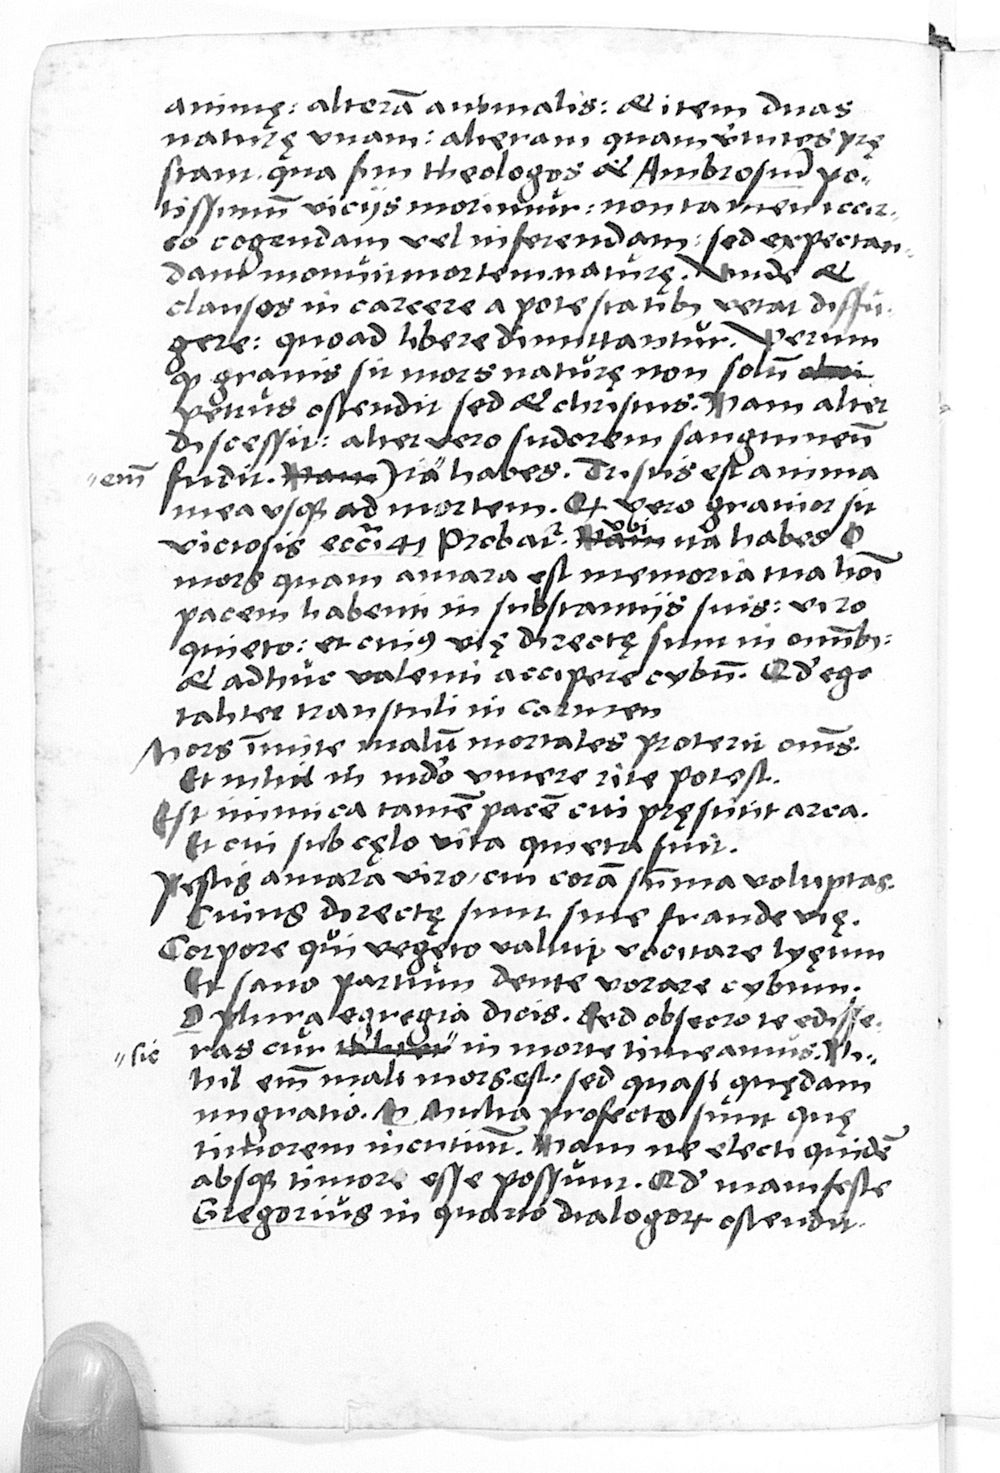 animę: alterā animalis: & item duas
naturę vnam: alteram quam v̄tutes prę
stant. qua sm̄ theologos & Ambrosiū po-
tissimū viciis morimur: non tamen iccir-
co cogendam vel inferendam: sed expectan-
dam monuit mortem naturę. Vnde &
clausos in carcere a potestatib; vetat diffu-
gere: quoad libere dimittantur. Verum
q̄ grauis sit mors naturę non solū
petrus ostendit sed & christus. Nam alter
discessit: alter vero sudorem sanguineū
"em̄ fudit. Nam) ita" habes. Tristis est anima
mea vsq; ad mortem. Et vero grauior sit
viciosis ecc̄i 41 Probat̄. Nam vbi ita habes O
mors quam amara est memoria tua hoī
pacem habenti in substantiis suis: viro
quieto: et cui9 vię directę sunt in omīb;:
& adhuc valenti accipere cybū. Qd̄ ego
taliter transtuli in carmen
Mors īmite malū mortales proterit om̄s.
Et nihil in mūdo viuere rite potest.
Est inimica tamē pacē cui pręstitit arca.
Et cui sub cęlo vita quieta fuit.
Pestis amara viro, cui corā sūma voluptas.
Cuius directę sunt sine fraude vię.
Corpore qui vegeto valuit vocitare lyęum
Et sano partum dente vorare cybum.
D plura egregia dicis. Sed obsecro te edisse-
"sic ras cur taliter" in morte timeamus. Ni-
hil em̄ mali mors est: sed quasi quędam
migratio. M Multa profecto sunt quę
timorem incutiūt. Nam ne electi quidē
absq; timore esse possunt. Qd̄ manifeste
Gregorius in quarto dialogoꝝ ostendit.